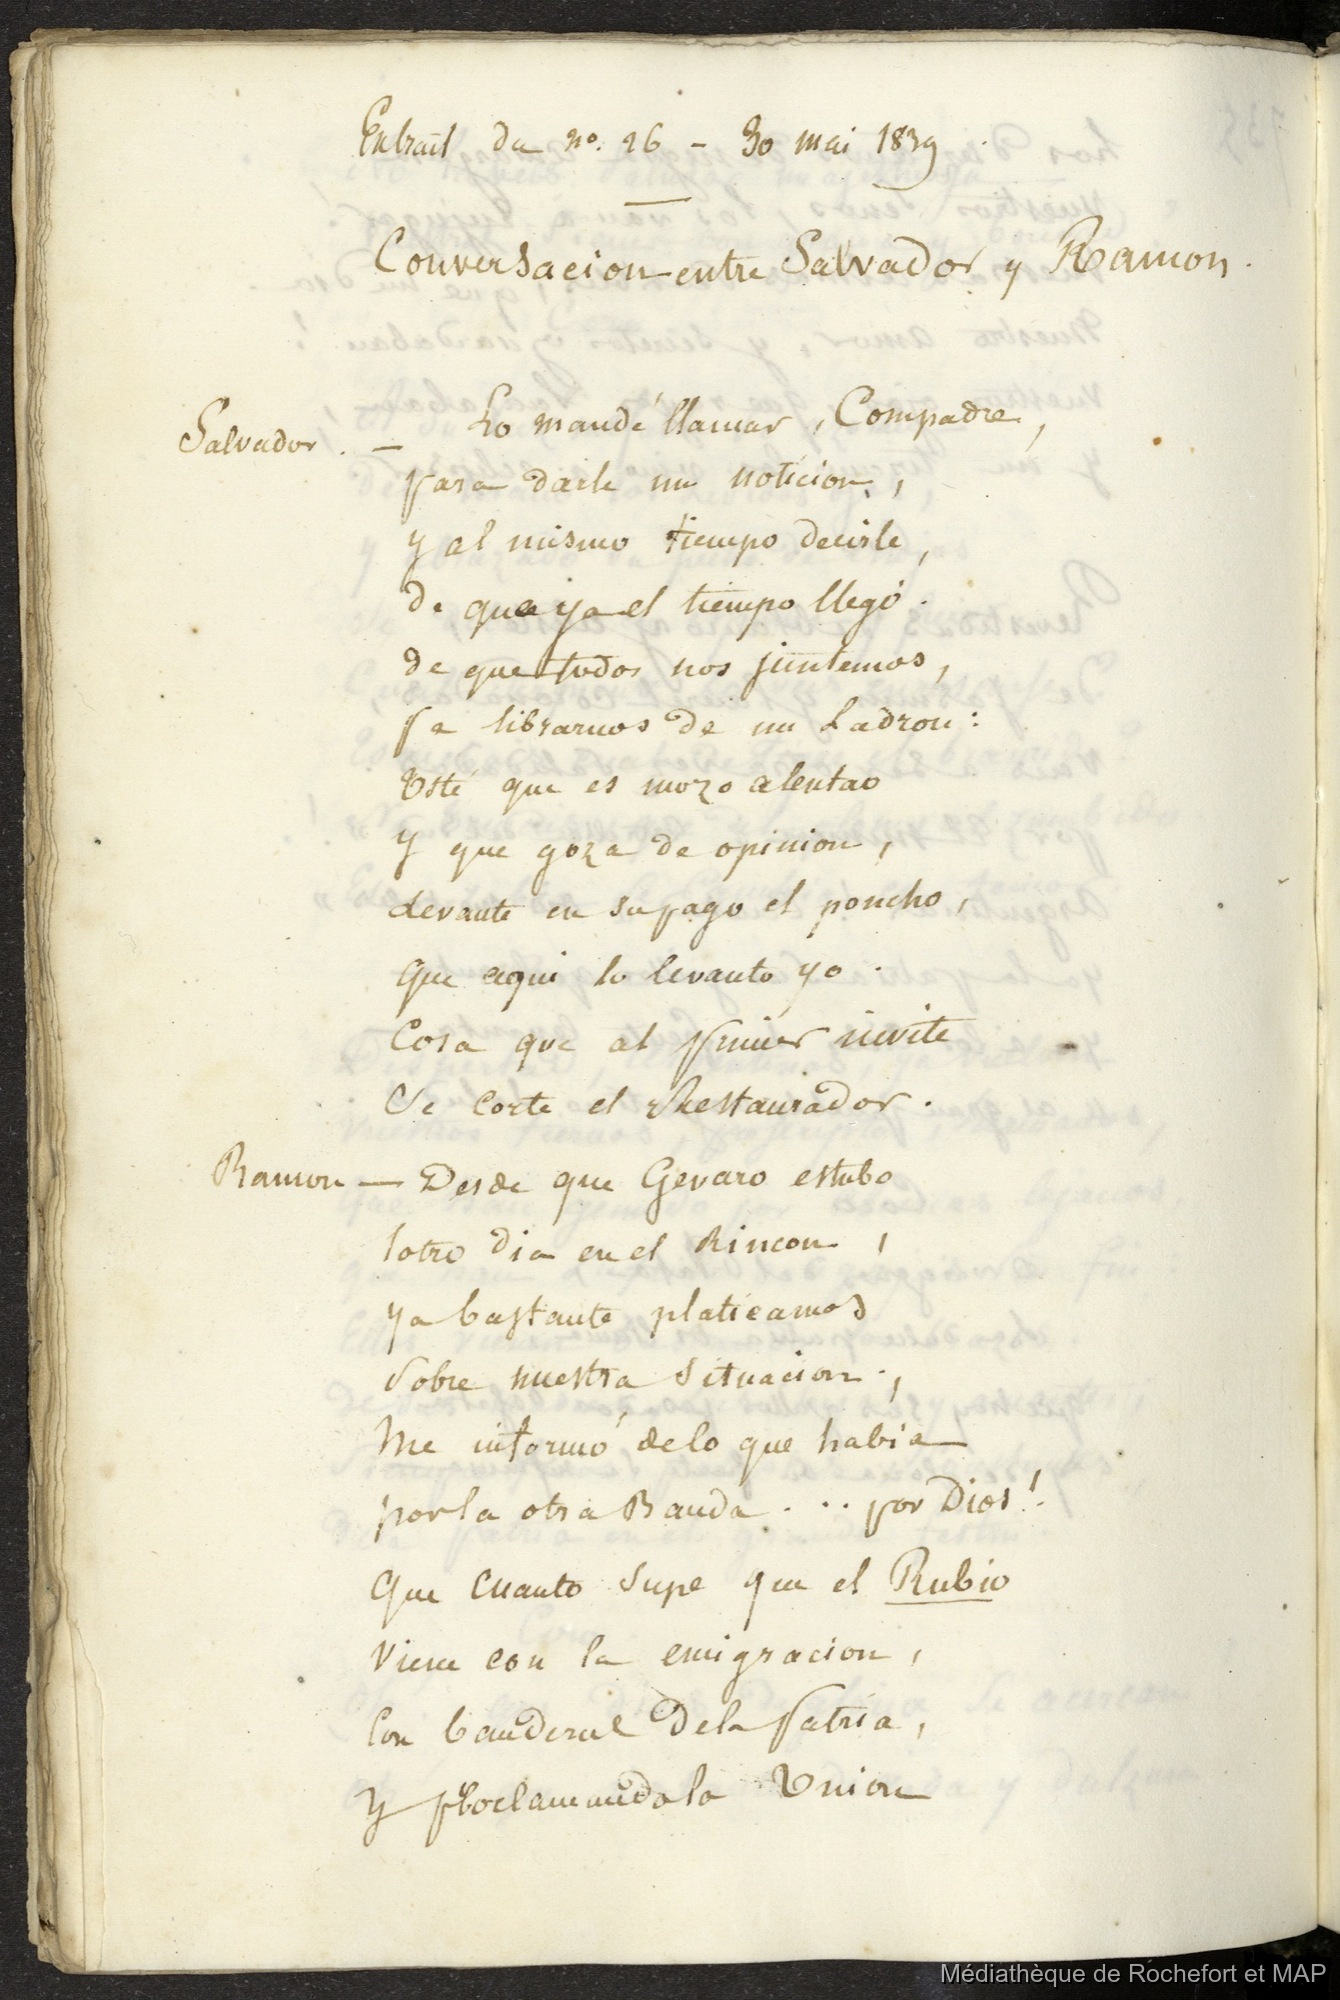 Extrait du nº. 26 - 30 mai 1839.
Conversacion entre Salvador y Ramon.
Salvador. — Lo mandé llamar, Compadre,
para darle un noticion,
y al mismo tiempo decirle,
de que ya el tiempo llegó.
de que todos nos juntemos,
pa librarnos de un Ladron:
Usté que es mozo alentao
y que goza de opinion,
levante en su pago el poncho,
que aqui lo levanto yo.
Cosa que al primer invite
Se corte el Restaurador.
Ramon — Desde que Genaro estubo
lotro dia en el Rincon,
ya bastante platicamos
Sobre nuestra situacion;
Me informó delo que habia
por la otra Banda... por Dios!
Que cuanto supe que el Rubio
viene con la emigracion,
Con la Patria,
y proclamando la Union
Médiathèque de Rochefort et MAP